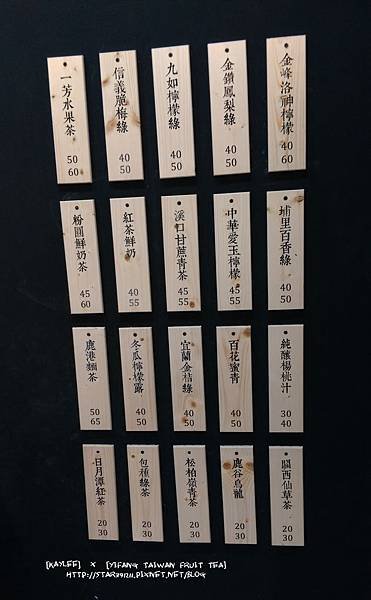 一芳水果茶
50
60
信義脆梅綠
40
50
九如檸檬綠
40
50
金鑽鳳梨綠
40
50
金峰洛神檸檬
40
60
粉圓鮮奶茶
45
60
紅茶鮮奶
40
55
溪口甘蔗青茶
45
55
中華愛玉檸檬
45
55
埔里百香綠
40
50
鹿港麵茶
50
65
冬瓜檸檬露
40
50
宜蘭金桔綠
40
50
百花蜜青
40
50
純釀楊桃汁
30
40
日月潭紅茶
20
30
包種綠茶
20
30
松柏嶺青茶
20
30
鹿谷烏龍
20
30
關西仙草茶
20
30
[KAYLEE] × [YIFANG TAIWAN FRUIT TEA]